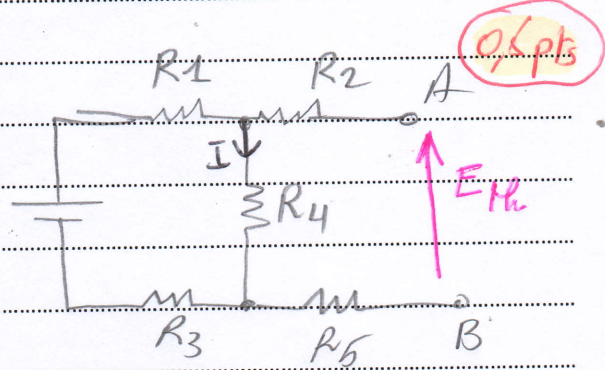 0,5 pts
R1 R2 A
I
R4
ETh
R3 R5 B